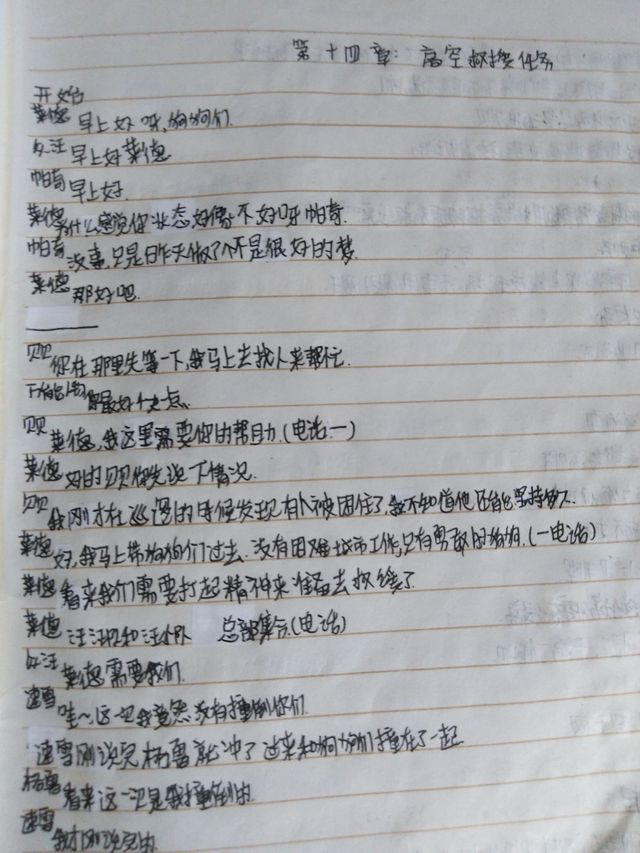 第十四章：高空救援任务
开始
莱德 早上好呀,狗狗们.
众汪 早上好莱德
帕奇 早上好.
莱德 为什么感觉你状态好像不好呀帕奇.
帕奇 没事,只是昨天做了个不是很好的梦.
莱德 那好吧.
贝贝 你在那里先等一下,我马上去找人来帮忙.
你最好快点.
贝贝 莱德,我这里需要你的帮助.(电话一)
莱德 好的贝贝你先说下情况.
贝贝 我刚才在巡逻的时候发现有个被困住了,我不知道他还能坚持多久.
莱德 好,我马上带狗狗们过去.没有困难的工作,只有勇敢的狗狗.(一电话)
莱德 看来我们需要打起精神来准备去救援了
莱德 汪汪队和汪小队 总部集合.(电话)
众汪 莱德需要我们.
速雪 哇~这一次我竟然没有撞倒你们.
速雪刚说完杨雪就冲了过来和狗狗们撞在了一起
杨雪 看来这一次是我撞倒的.
速雪 我才刚说完的.